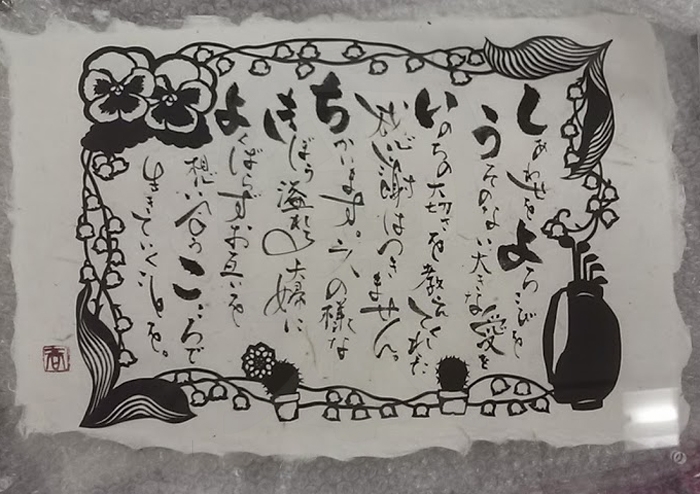 しあわせをよろこびを
うそのない大きな愛を
いのちの大切さを教えてくれた
感謝はつきません。
ちかいます。二人の様な
きぼう溢れる夫婦に
よくばらずお互いを
想い合うこころで
生きていく事を。